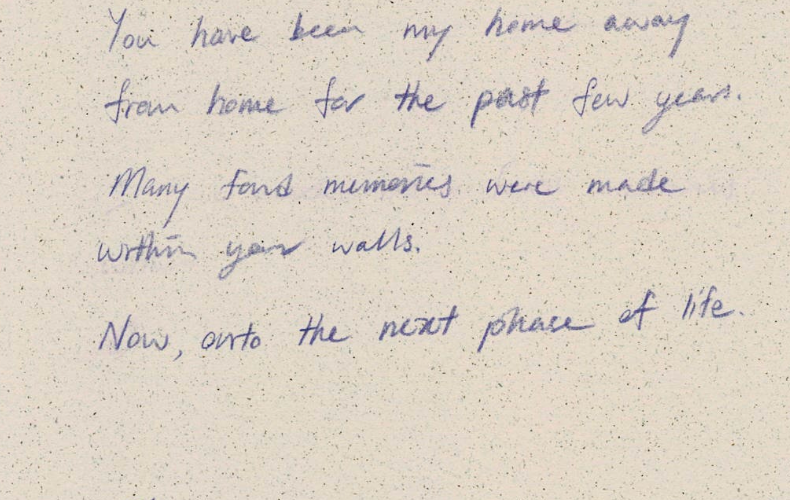 You have been my home away
from home for the past few years.
Many fond memories were made
within your walls.
Now, onto the next phase of life.